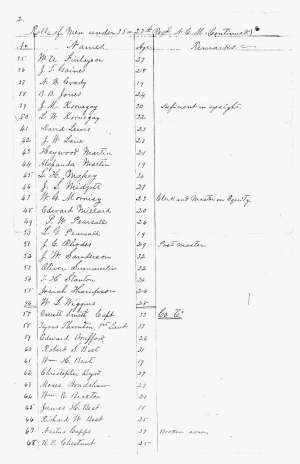 2.
Roll of Men under 25 - 27th Regt. N. C. M. Continued
No Names Age Remarks
35 M. A. Finlayson 27
36 J. S. Gaines 28
37 A. B. Grady 19
38 B. B. Jones 24
39 J. M. Kornegay 30 Deficient in eyesight.
40 L. W. Kornegay 32
41 David Lewis 23
42 J. W. Lane 23
43 Haywood Martin 21
44 Alexander Martin 19
45 L. H. Maxey 34
46 J. S. Midgett 27
47 W. A. Morrisey 23 Clerk and Master in Equity.
48 Edward Millard 20
49 P. W. Pearsall 24
50 L. G. Pearsall 19
51 J. C. Rhodes 29 Post master
52 J. W. Sanderson 32
53 Oliver 27
54 T. H. Stanton 24
55 Josiah Thompson 24
56 W. L. Wiggins 28
57 Everett Smith Capt 33 Co. E.
58 Cyrus Thornton, 1st Lieut 33
59 Edward 26
60 Robert S. Best 31
61 Wm H. Best 19
62 Christopher 27
63 Moses Bradshaw 21
64 Wm. B. 21
65 James H. Best 18
66 Richard W. Best 25
67 Capps 33 Broken arm.
68 B. B. Chestnut 25